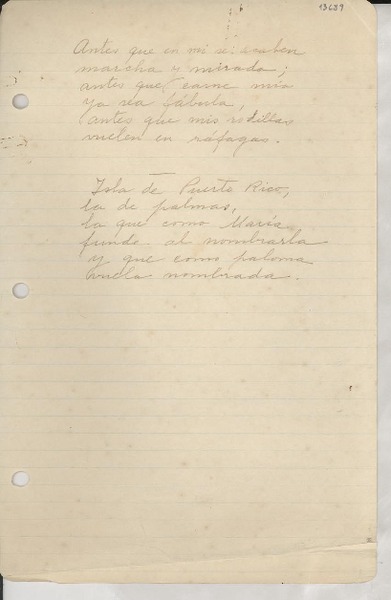 13689
Antes que en mí se acaben
marcha y mirada;
antes que carne mía
ya sea fábula,
antes que mis rodillas
vuelen en ráfagas.
Isla de Puerto Rico,
la de palmas,
la que como María
funde al nombrarla
y que como paloma
vuela nombrada.